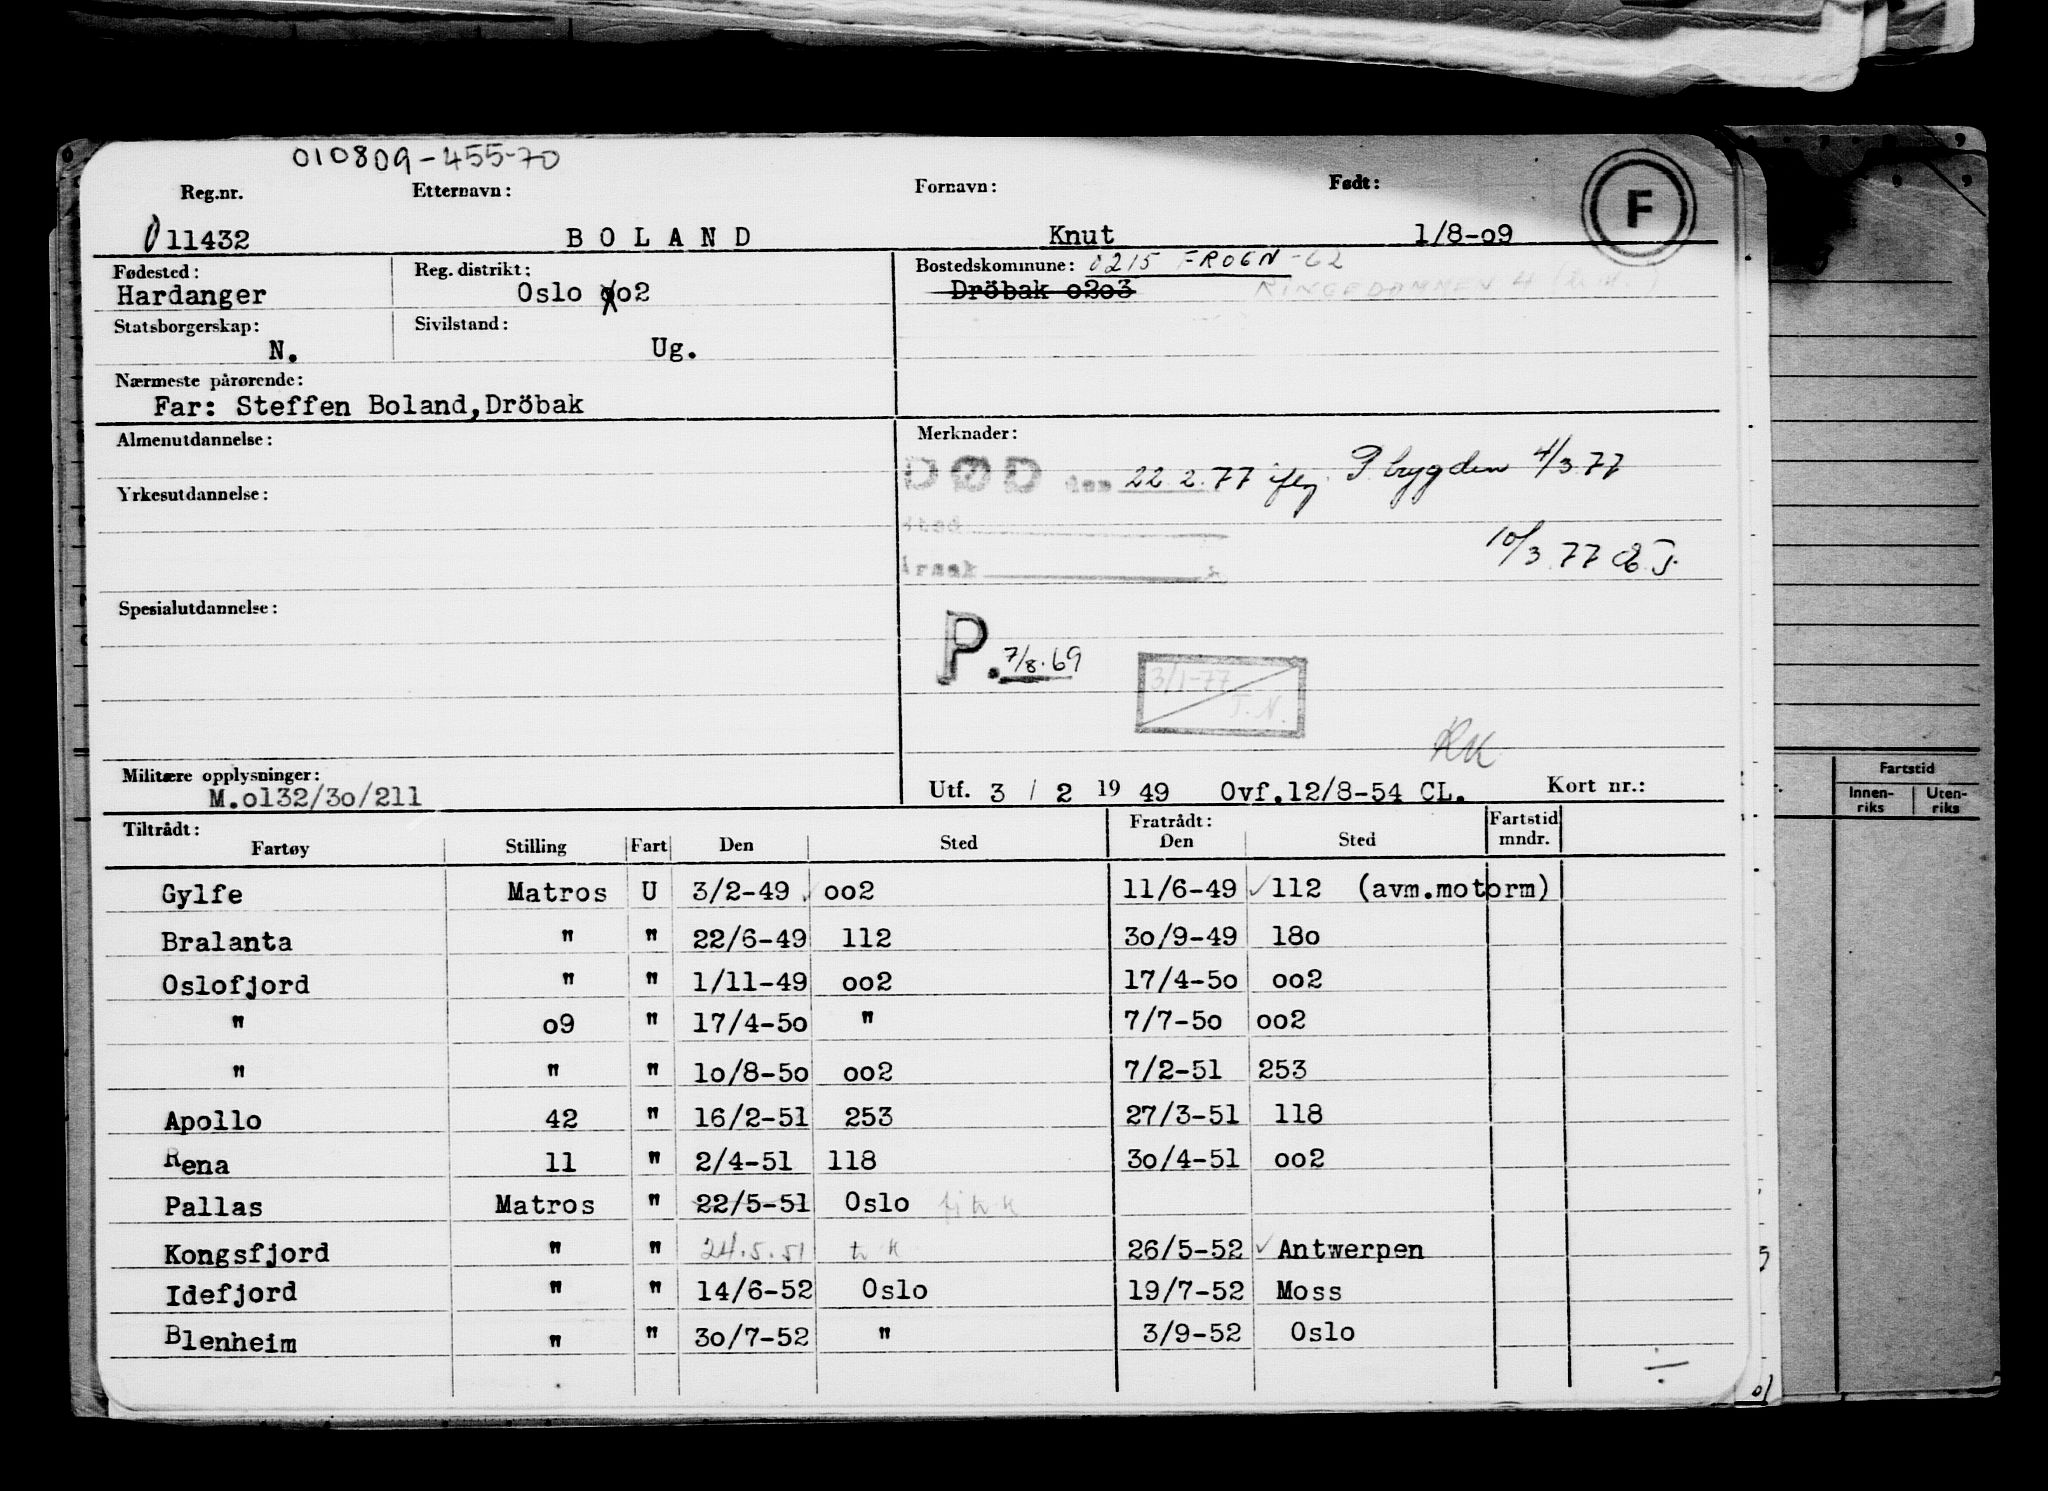 010809-455-70
Reg.nr. Etternavn: Fornavn: Født: F
011432 BOLAND Knut 1/8-o9
Fødested: Reg. distrikt: Bostedskommune: 0215 FROGN -62
Hardanger Oslo oo2 Dröbak o2o3 RINGEDAMMEN 4
Statsborgerskap: Sivilstand:
N. Ug.
Nærmeste pårørende:
Far: Steffen Boland,Dröbak
Almenutdannelse: Merknader:
DØD den 22.2.77 iflg. P.bygden 4/3.77
Yrkesutdannelse:
sted
10/3.77
årsak
Spesialutdannelse:
P. 7/8.69
3/1-77
T.N.
RK
Militære opplysninger: Utf. 3 / 2 19 49 Ovf.12/8-54 CL. Kort nr.:
M.o132/3o/211
Tiltrådt: Fratrådt: Fartstid
Fartøy Stilling Fart Den Sted Den Sted mndr.
Gylfe Matros U 3/2-49 oo2 11/6-49 ✓ 112 (avm.motorm)
Bralanta " " 22/6-49 112 3o/9-49 18o
Oslofjord " " 1/11-49 oo2 17/4-5o oo2
" o9 " 17/4-5o " 7/7-5o oo2
" " " 1o/8-5o oo2 7/2-51 253
Apollo 42 " 16/2-51 253 27/3-51 118
Rena 11 " 2/4-51 118 3o/4-51 oo2
Pallas Matros " 22/5-51 Oslo
Kongsfjord " " 24.5.51 tr k 26/5-52 ✓ Antwerpen
Idefjord " " 14/6-52 Oslo 19/7-52 Moss
Blenheim " " 3o/7-52 " 3/9-52 Oslo
Fartstid
Innen-riks Uten-riks